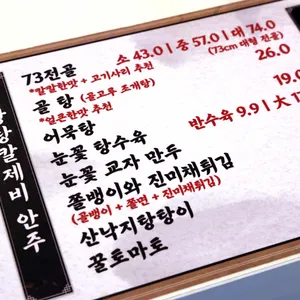 73전골 소 43.0 l 중 57.0 l 대 74.0
*칼칼한맛 + 고기사리 추천 (73cm 대형 전골)
골탕 (골고루 조개탕) 26.0
*얼큰한맛 추천
어묵탕 19.0
눈꽃 탕수육 반수육 9.9 l 大 1
눈꽃 교자 만두
쫄뱅이와 진미채튀김
(골뱅이 + 쫄면 + 진미채튀김)
산낙지탕탕이
꿀토마토
탕칼제비 안주